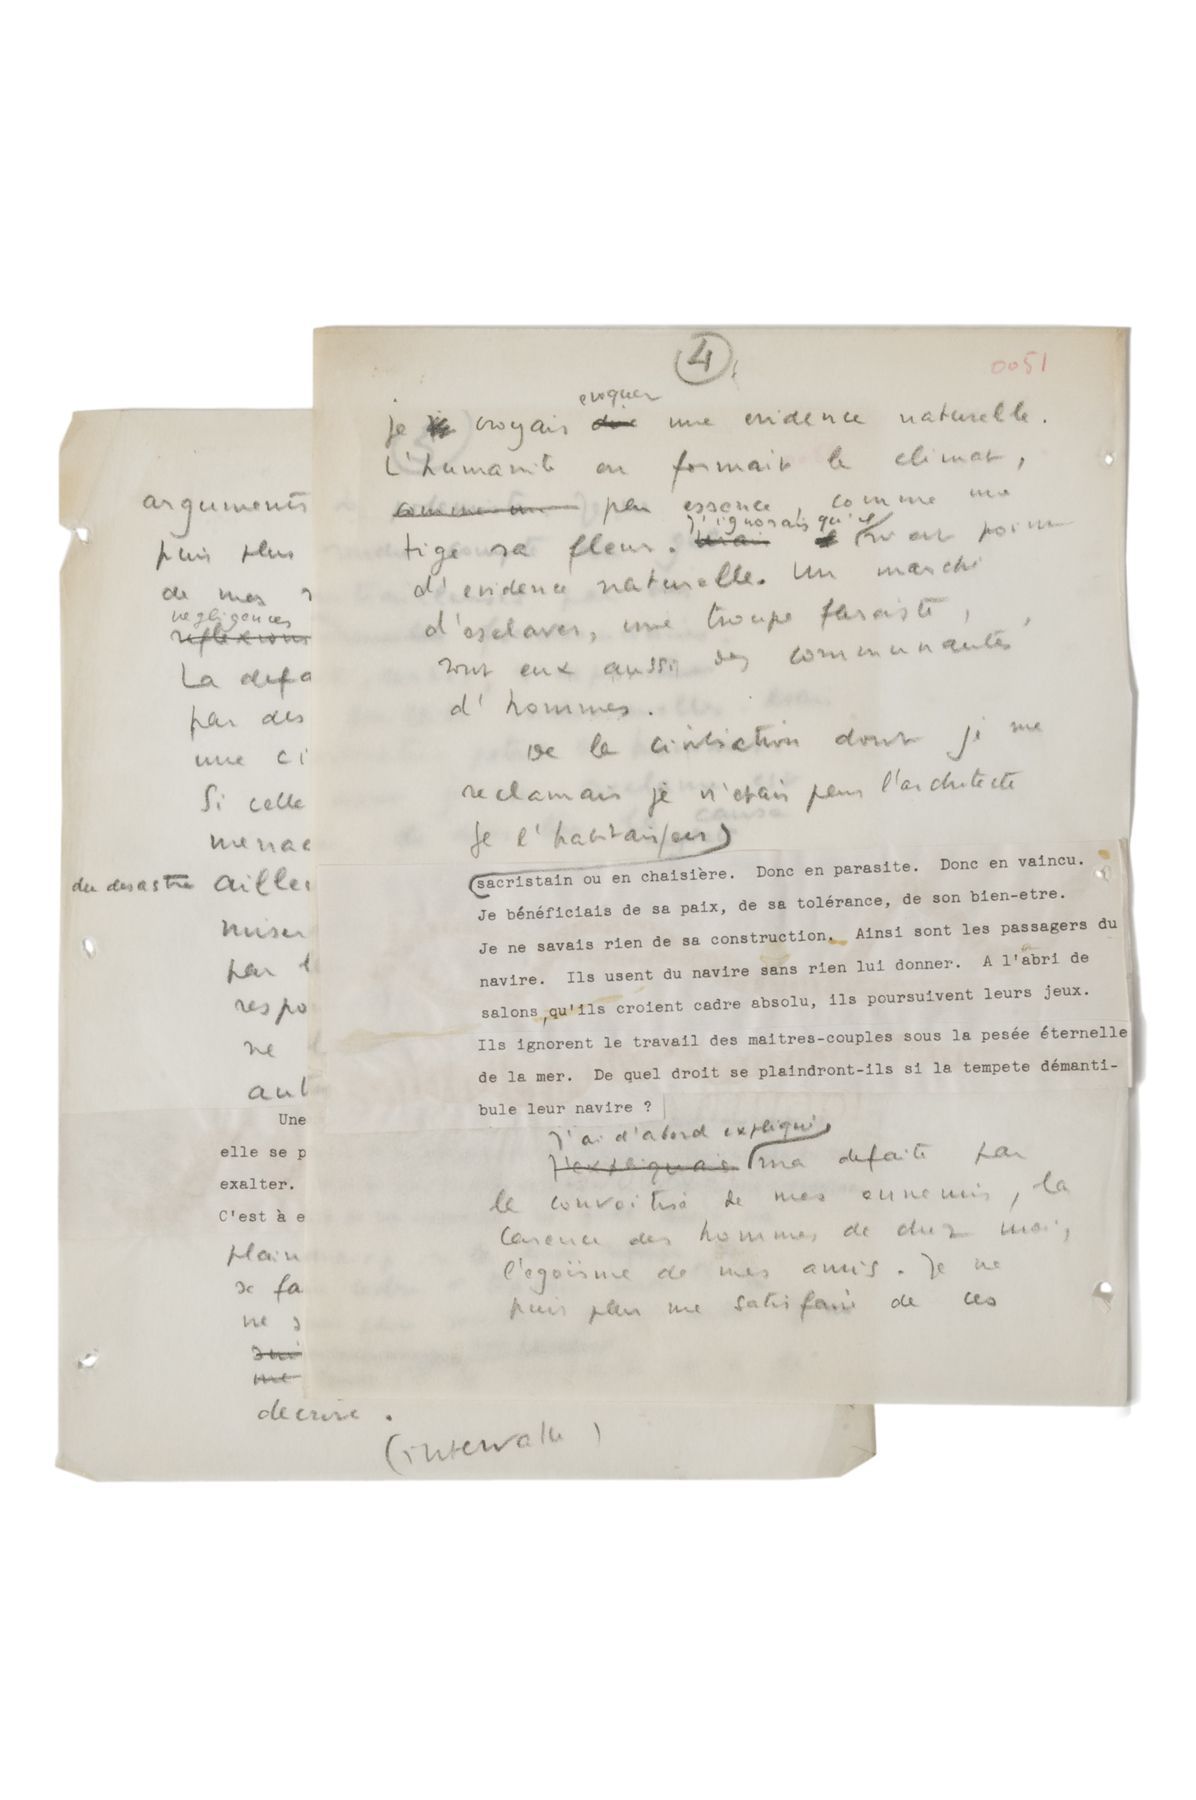 4
0051
evoquer
je croyais dire une evidence naturelle.
L'humanité en formait le climat,
comme une par essence, comme une
j'ignorais qu'il
tige sa fleur. Mais n'est point
d'evidence naturelle. Un marché
d'esclaves, une troupe
sont eux aussi des communautés
d'hommes.
De la civilisation dont je me
reclamais je n'etais pas l'architecte
Je l'habitais (en)
sacristain ou en chaisière. Donc en parasite. Donc en vaincu.
Je bénéficiais de sa paix, de sa tolérance, de son bien-etre.
Je ne savais rien de sa construction. Ainsi sont les passagers du
navire. Ils usent du navire sans rien lui donner. A l'abri de
salons,qu'ils croient cadre absolu, ils poursuivent leurs jeux.
Ils ignorent le travail des maitres-couples sous la pesée éternelle
de la mer. De quel droit se plaindront-ils si la tempete démanti-
bule leur navire ?
J'ai d'abord expliqué
J'expliquais ma defaite par
la convoitise de mes ennemis, la
carence des hommes de chez moi,
l'egoïsme de mes amis. Je ne
puis plus me satisfaire de ces
arguments
puis plus
de mes
negligences
reflexions
La defa
par des
une ci
Si celle
menac
du desastre ailleu
miser
par l
respo
ne
aut
Une
elle se p
exalter.
C'est à e
plain
se fa
ne s
sui
me
decrire.
(intervalle)